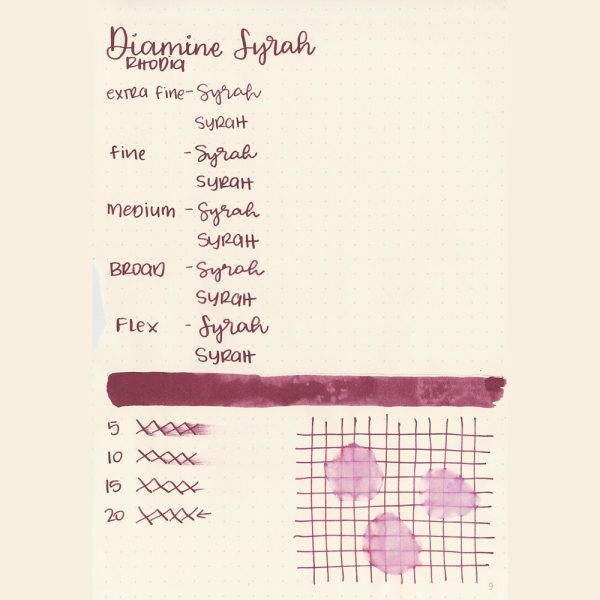 Diamine Syrah
RHODIA
extra fine - Syrah
SYRAH
fine - Syrah
SYRAH
Medium - Syrah
SYRAH
BROAD - Syrah
SYRAH
FLEX - Syrah
SYRAH
5
10
15
20
9